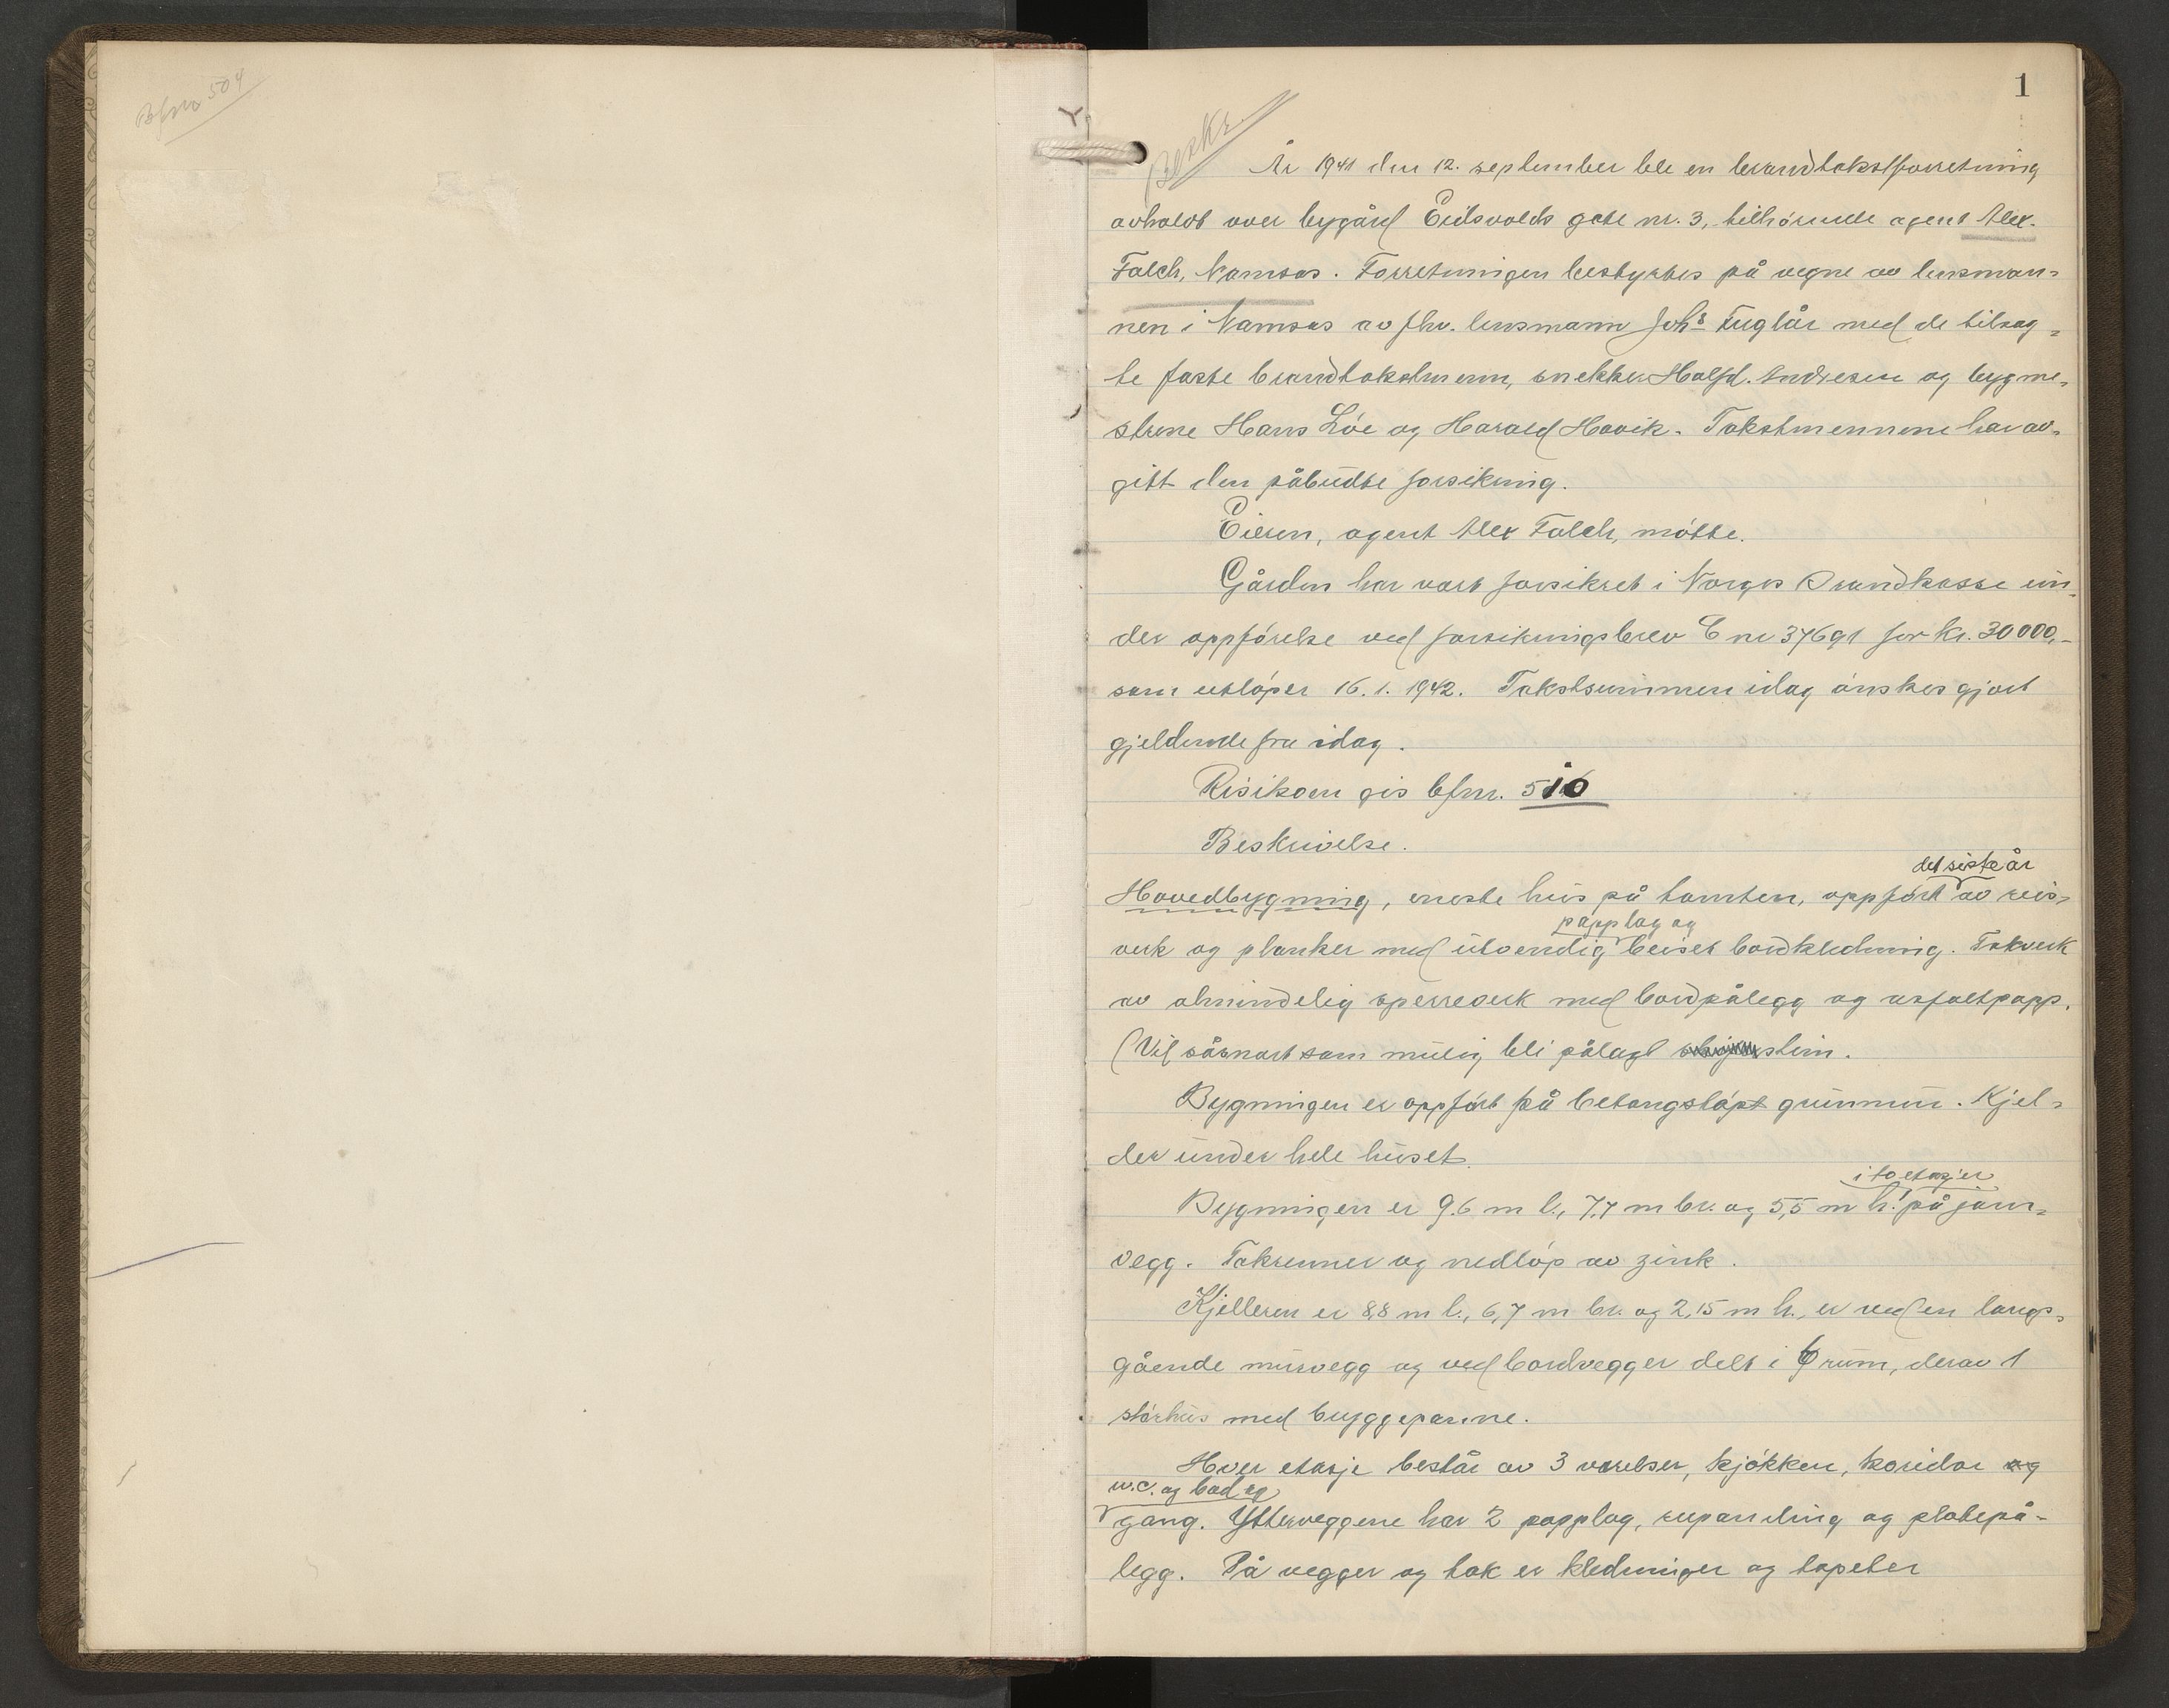 Bfnr 504
1
Beskr.
År 1941 den 12. september ble en brandtakstforretning
avholdt over bygård Eidsvolds gate nr. 3, tilhörende agent Alex.
Falch, Namsos. Forretningen bestyrtes på vegne av lensman-
nen i Namsos av fhv. lensmann Johs Fuglår med de tilsag-
te faste brandtakstmenn, snekker Halfd. Andresen og bygme-
strene Hans Löe og Harald Havik. Takstmennene har av-
gitt den påbudte forsikring.
Eieren, agent Alex Falch, mötte.
Gården har vært forsikret i Norges Brandkasse un-
der oppförelse ved forsikringsbrev E nr 37691 for kr. 30000,-
som utlöper 16.1.1942. Takstsummen idag önskes gjort
gjeldende fra idag.
Risikoen gis bfnr. 510
Beskrivelse.
det siste år
Hovedbygning, eneste hus på tomten, oppfört av reis-
papplag og
verk og planker med utvendig beiset bordkledning. Takverk
av almindelig sperreverk med bordpålegg og asfaltpapp.
(Vil såsnart som mulig bli pålagt stein.
Bygningen er oppfört på betongstöpt grunnmur. Kjel-
der under hele huset.
i to etasjer
Bygningen er 9.6 m l., 7.7 m br. og 5,5 m h. på jam-
vegg. Takrenner og nedlöp av zink.
Kjelleren er 8,8 m l., 6,7 m br. og 2,15 m h., er ved en langs-
gående murvegg og ved bordvegger delt i 6 rum, derav 1
störhus med bryggepanne.
Hver etasje består av 3 værelser, kjökken, koridor og
w.c. og bad og
gang. Ytterveggene har 2 papplag, rupaneling og platepå-
legg. På vegger og tak er kledninger og tapeter